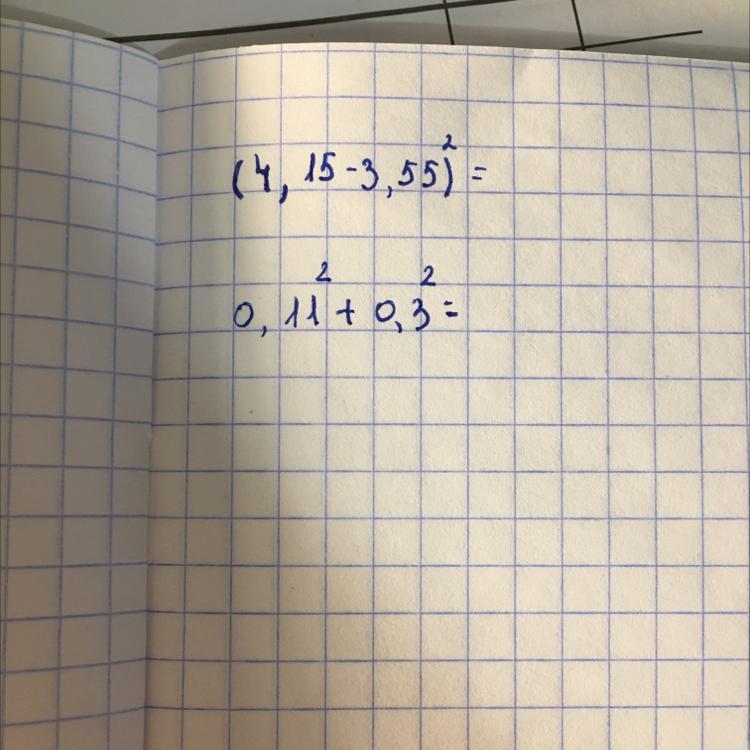 (4,15-3,55)² =
0,11² + 0,3² =